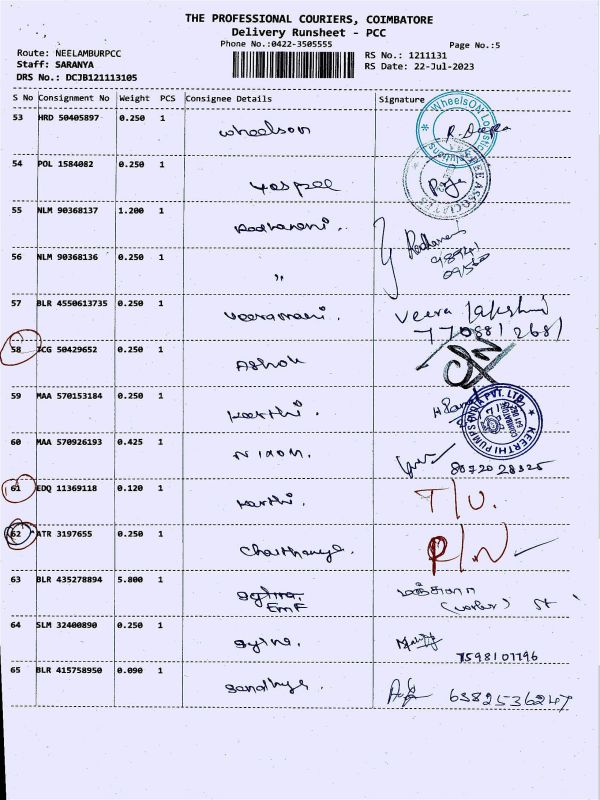 THE PROFESSIONAL COURIERS, COIMBATORE
Delivery Runsheet - PCC
Phone No.:0422-3505555
Page No.:5
Route: NEELAMBURPCC
RS No.: 1211131
Staff: SARANYA
RS Date: 22-Jul-2023
DRS No.: DCJB121113105
S No Consignment No Weight PCS Consignee Details Signature
53 HRD 50405897 0.250 1 Wheelson
54 POL 1584082 0.250 1
55 NLM 90368137 1.200 1
56 NLM 90368136 0.250 1 "
57 BLR 4550613735 0.250 1 Veeramani. Veera lakshmi
7708812681
58 ICG 50429652 0.250 1 Ashok
59 MAA 570153184 0.250 1 Karthi.
KEERTHI PUMPS INDIA PVT. LTD.
60 MAA 570926193 0.425 1 Nixon.
61 EDQ 11369118 0.120 1 Karthi. T/U.
62 ATR 3197655 0.250 1 Chaithanya. P/N
63 BLR 435278894 5.800 1
EMF
64 SLM 32400890 0.250 1
7598107796
65 BLR 415758950 0.090 1 Sandhya. 6382536247